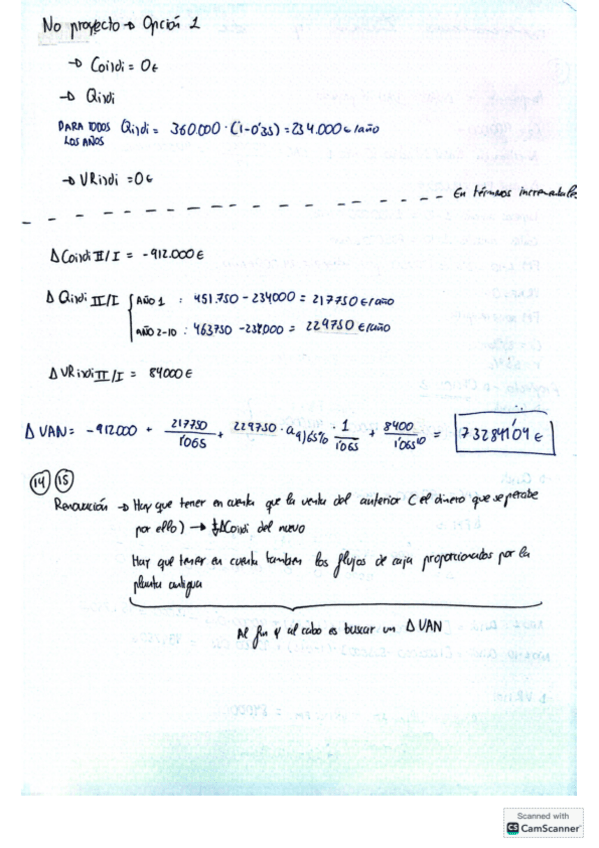 No proyecto → Opción 1
→ Coi)di = 0€
→ Qi)di
PARA TODOS LOS AÑOS Qi)di = 360.000 · (1-0'35) = 234.000 €/año
→ VRi)di = 0€
En términos incrementales
Δ Coi)di II/I = -912.000 €
Δ Qi)di II/I { AÑO 1 : 451.750 - 234000 = 217750 €/año
AÑO 2-10 : 463750 - 234000 = 229750 €/año
Δ VRi)di II/I = 84000 €
Δ VAN = -912000 + 217750/1'065 + 229750 · a 9)6'5% · 1/1'065 + 8400/1'065^10 = 732841'04 €
(14) (15)
Renovación → Hay que tener en cuenta que la venta del anterior (el dinero que se percibe
por ello) → ΔCoi)di del nuevo
Hay que tener en cuenta tambien los flujos de caja proporcionados por la
planta antigua
Al fin y al cabo es buscar un Δ VAN
Scanned with
CS CamScanner